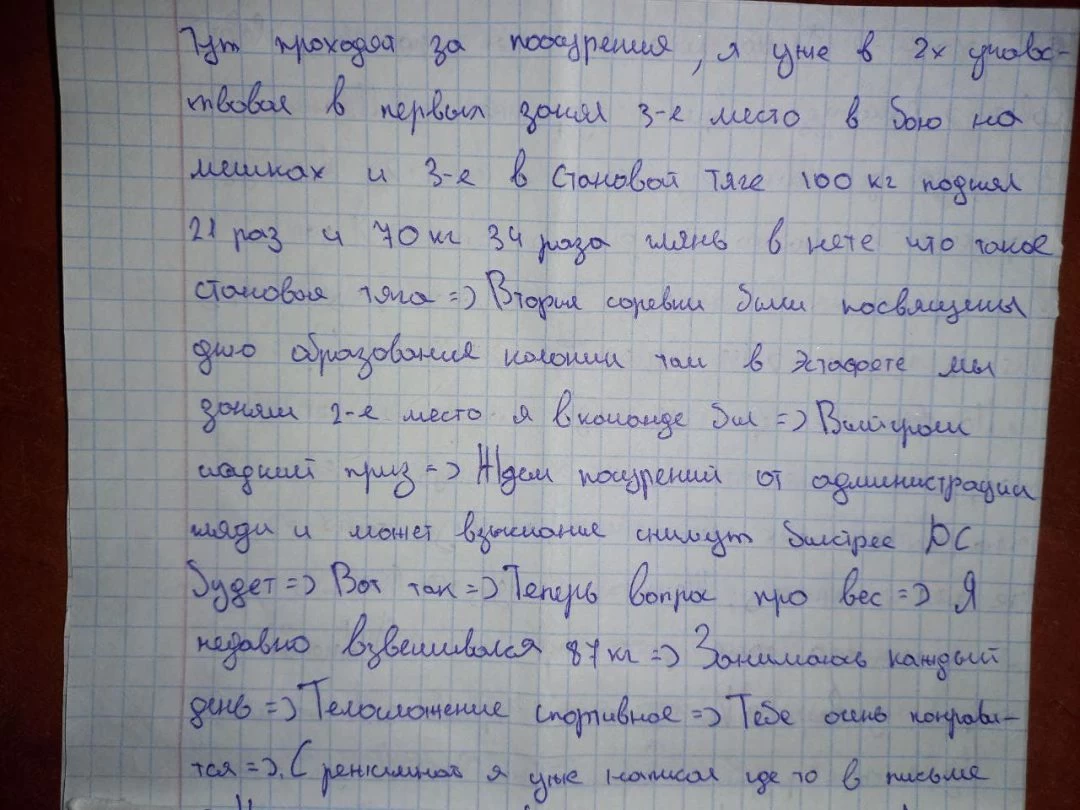 Тут проходят за поощрения, я уже в 2х участ-
твовал в первых занял 3-е место в бою на
мешках и 3-е в становой тяге 100 кг поднял
21 раз и 70 кг 34 раза глянь в нете что такое
становая тяга =) Вторые соревы были посвящены
дню образования колонии там в эстафете мы
заняли 2-е место я в команде был =) Выйграли
сладкий приз =) Ждем поощрений от администрации
гляди и может взыскание снимут быстрее ДС
будет =) Вот так =) Теперь вопрос про вес =) Я
недавно взвешивался 87 кг =) Занимаюсь каждый
день =) Телосложение спортивное =) Тебе очень понрави-
тся =). С я уже написал где то в письме